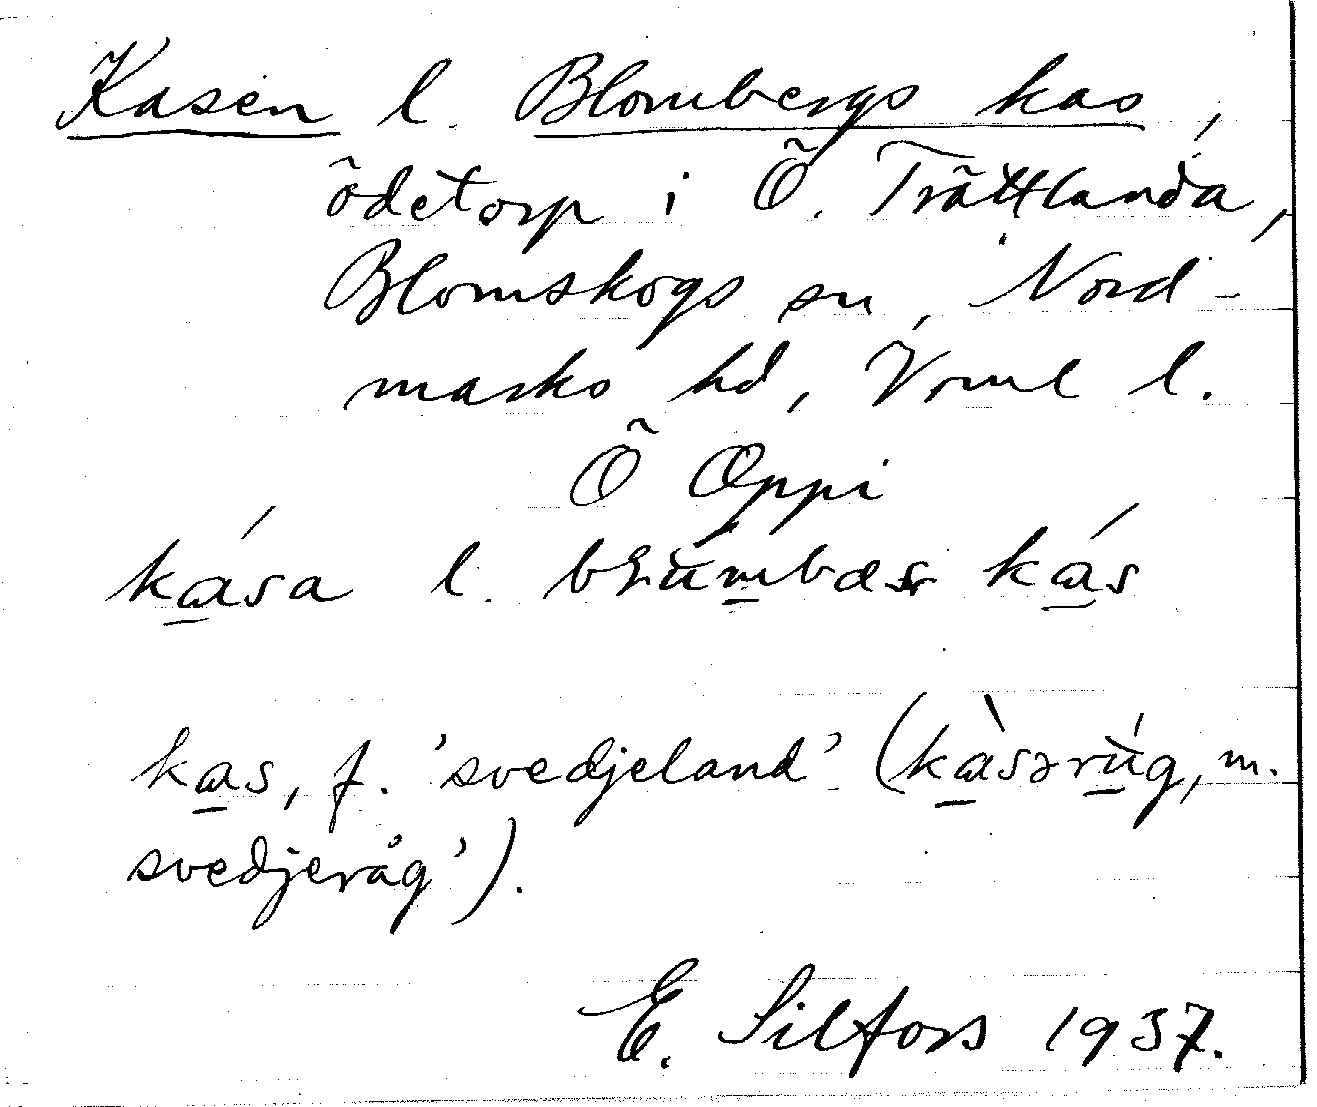 Kasen l. Blombergs kas,
ödetorp i Ö. Trättlanda,
Blomskogs sn, Nord-
marks hd, Vrml l.
Ö Öppi
ka̱´sa l. bɽu̇m̱bæs ka̱´s
ka̱s, f. 'svedjeland' (ka̱`səru̱´g, m.
svedjeråg').
E. Silfors 1937.